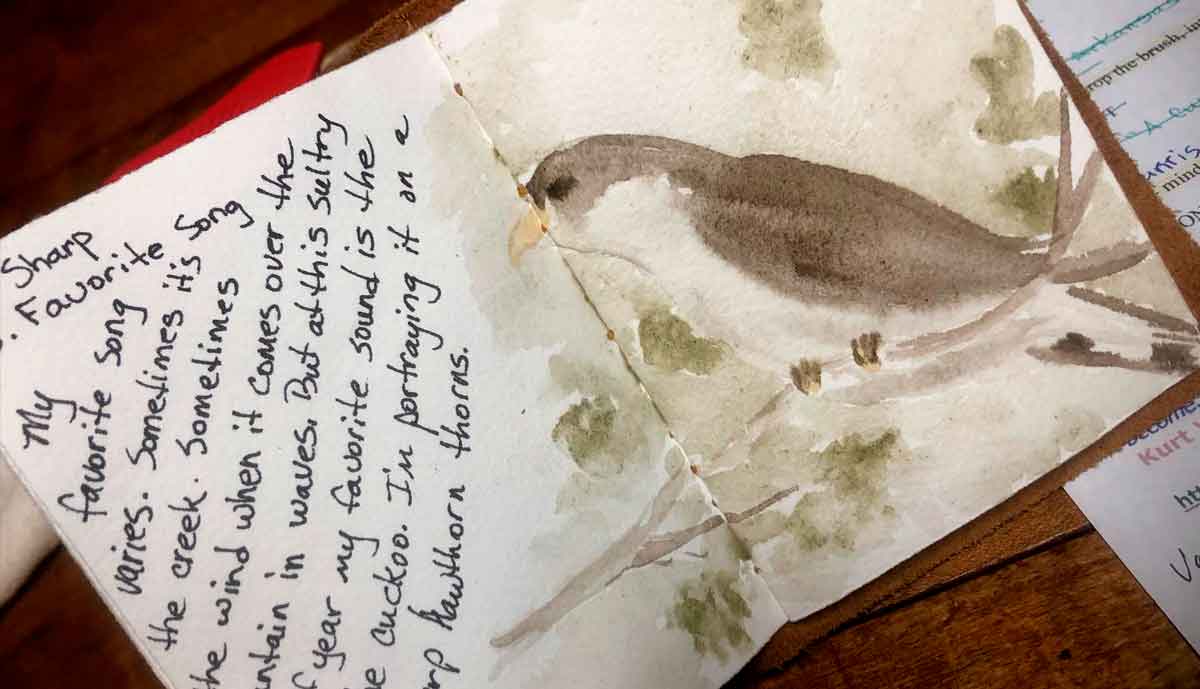 A Sharp
Favorite
My
favorite song
varies. Sometimes it's song
the creek. Sometimes
the wind when it comes over the
ntain in waves. But at this sultry
f year my favorite sound is the
e cuckoo. I'm portraying it on a
rp hawthorn thorns.
Arkansas
rop the brush, in
mind
become
Kurt